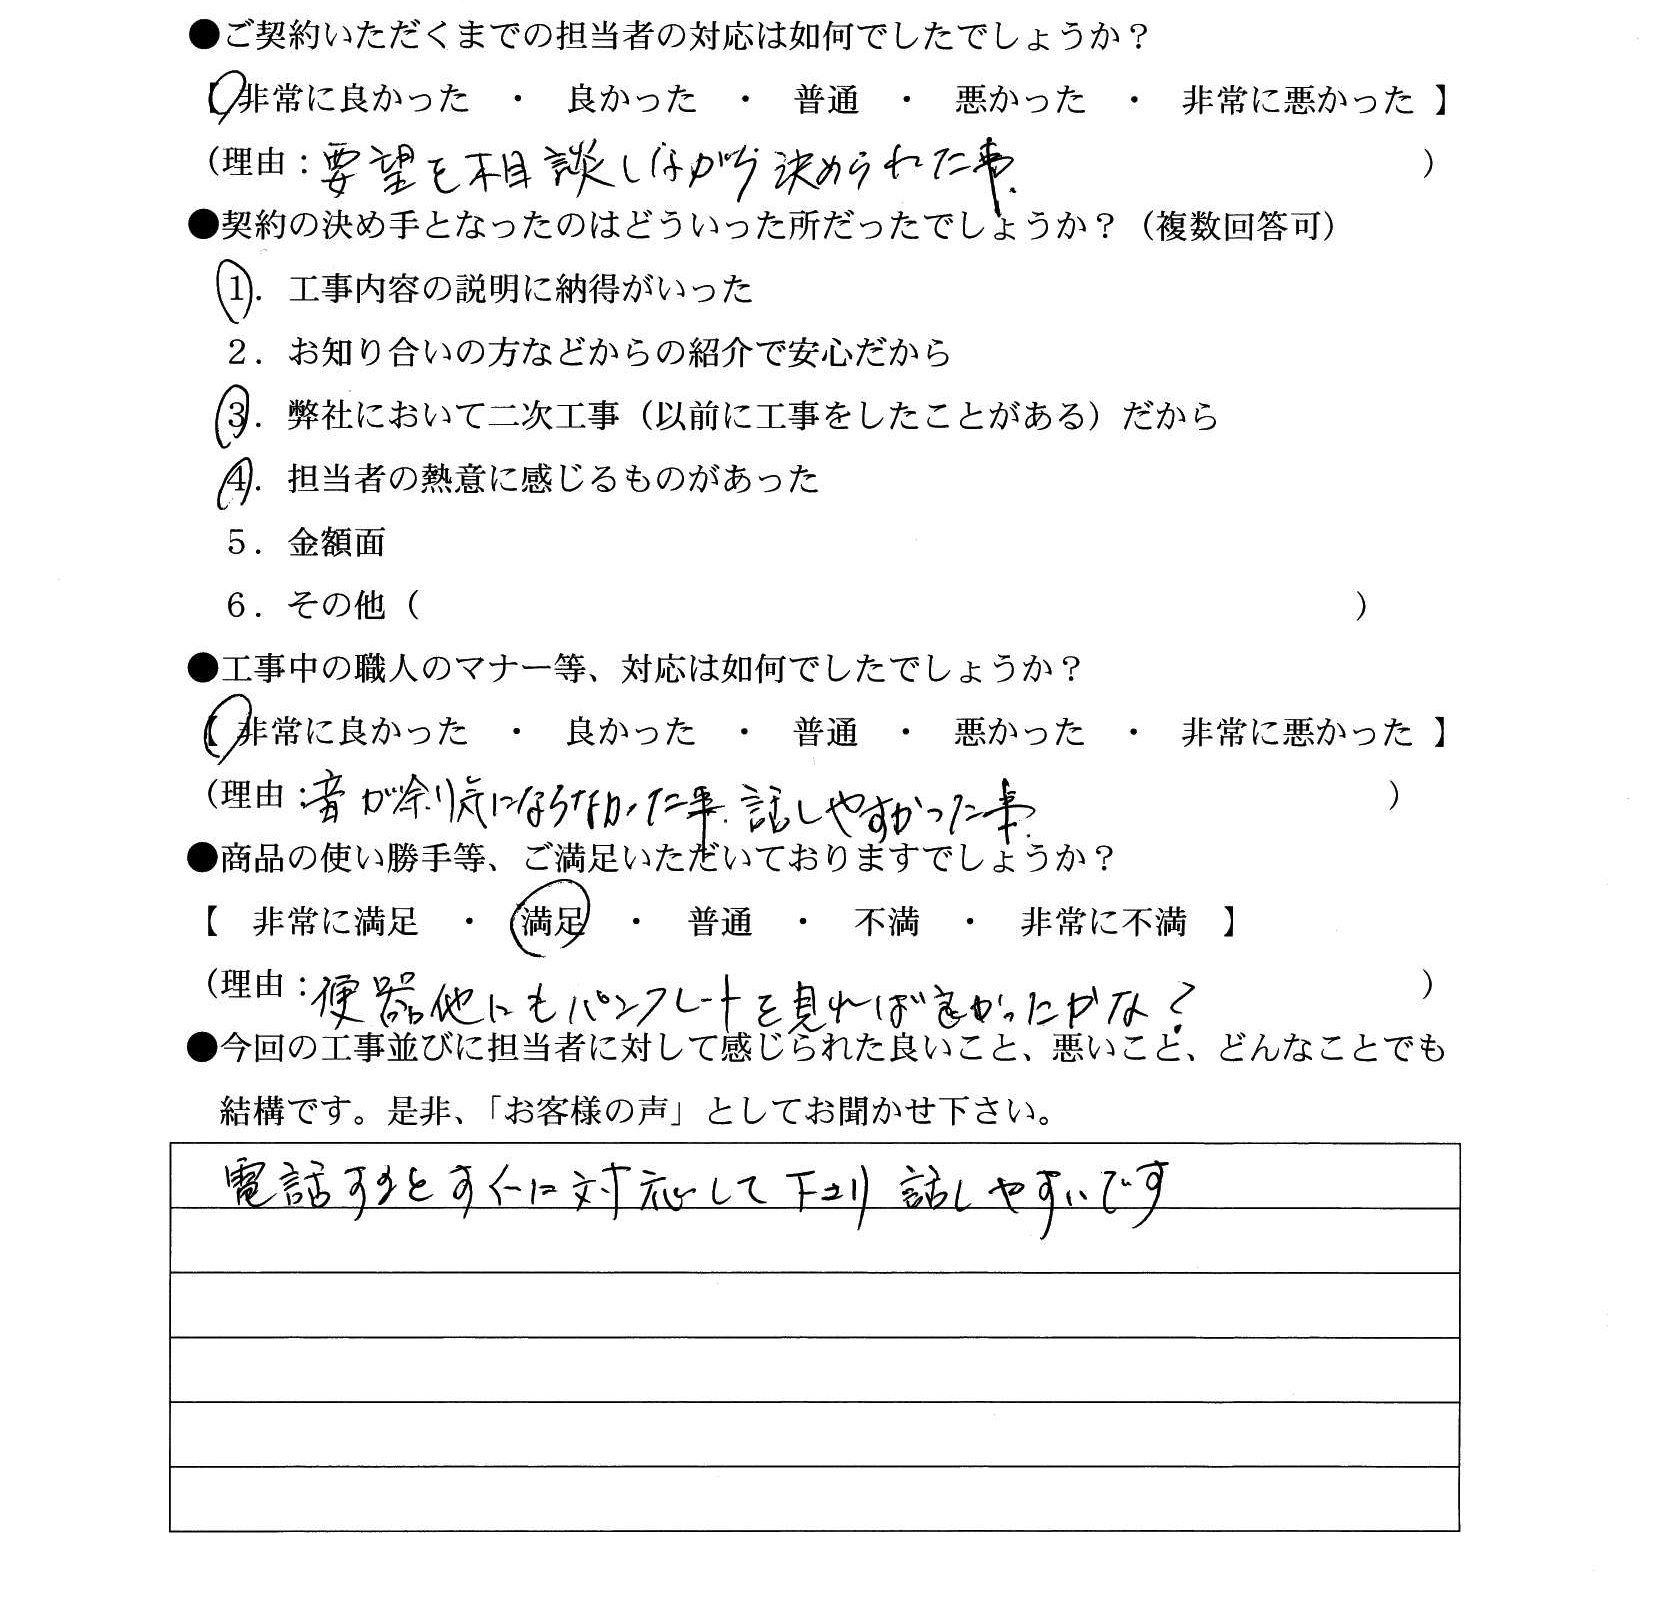 ●ご契約いただくまでの担当者の対応は如何でしたでしょうか？
【 非常に良かった ・ 良かった ・ 普通 ・ 悪かった ・ 非常に悪かった 】
（理由：要望を相談しながら決められた事. ）
●契約の決め手となったのはどういった所だったでしょうか？（複数回答可）
1．工事内容の説明に納得がいった
2．お知り合いの方などからの紹介で安心だから
3．弊社において二次工事（以前に工事をしたことがある）だから
4．担当者の熱意に感じるものがあった
5．金額面
6．その他（ ）
●工事中の職人のマナー等、対応は如何でしたでしょうか？
【 非常に良かった ・ 良かった ・ 普通 ・ 悪かった ・ 非常に悪かった 】
（理由：音が余り気にならなかった事. 話しやすかった事. ）
●商品の使い勝手等、ご満足いただいておりますでしょうか？
【 非常に満足 ・ 満足 ・ 普通 ・ 不満 ・ 非常に不満 】
（理由：便器他にもパンフレートを見れば良かったかな？ ）
●今回の工事並びに担当者に対して感じられた良いこと、悪いこと、どんなことでも
結構です。是非、「お客様の声」としてお聞かせ下さい。
電話するとすぐに対応して下さり 話しやすいです